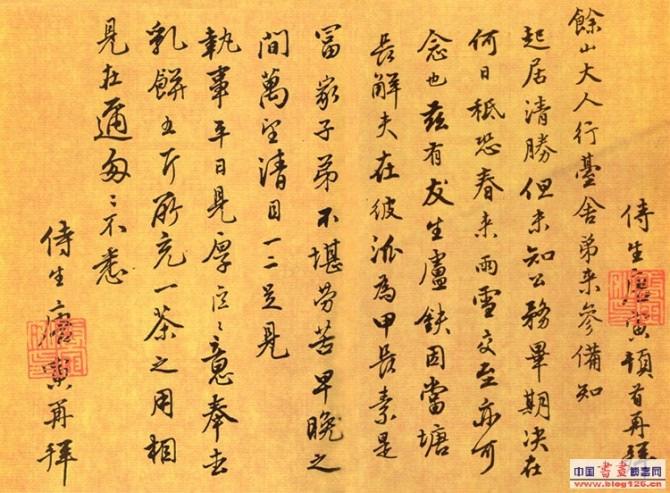 侍生唐寅頓首再拜
餘山大人行臺舍弟来參備知
起居清勝但未知公務畢期决在
何日秪恐春来雨雪交至亦可
念也茲有友生盧鈇因當塘
長解夫在彼派為甲長素是
冨家子弟不堪劳苦早晚之
間萬望清目一二足見
執事平日見厚区〻意奉去
乳餅五斤所充一茶之用相
見在邇匆〻不悉
侍生唐寅再拜
中国書畫
www.blog126.cn